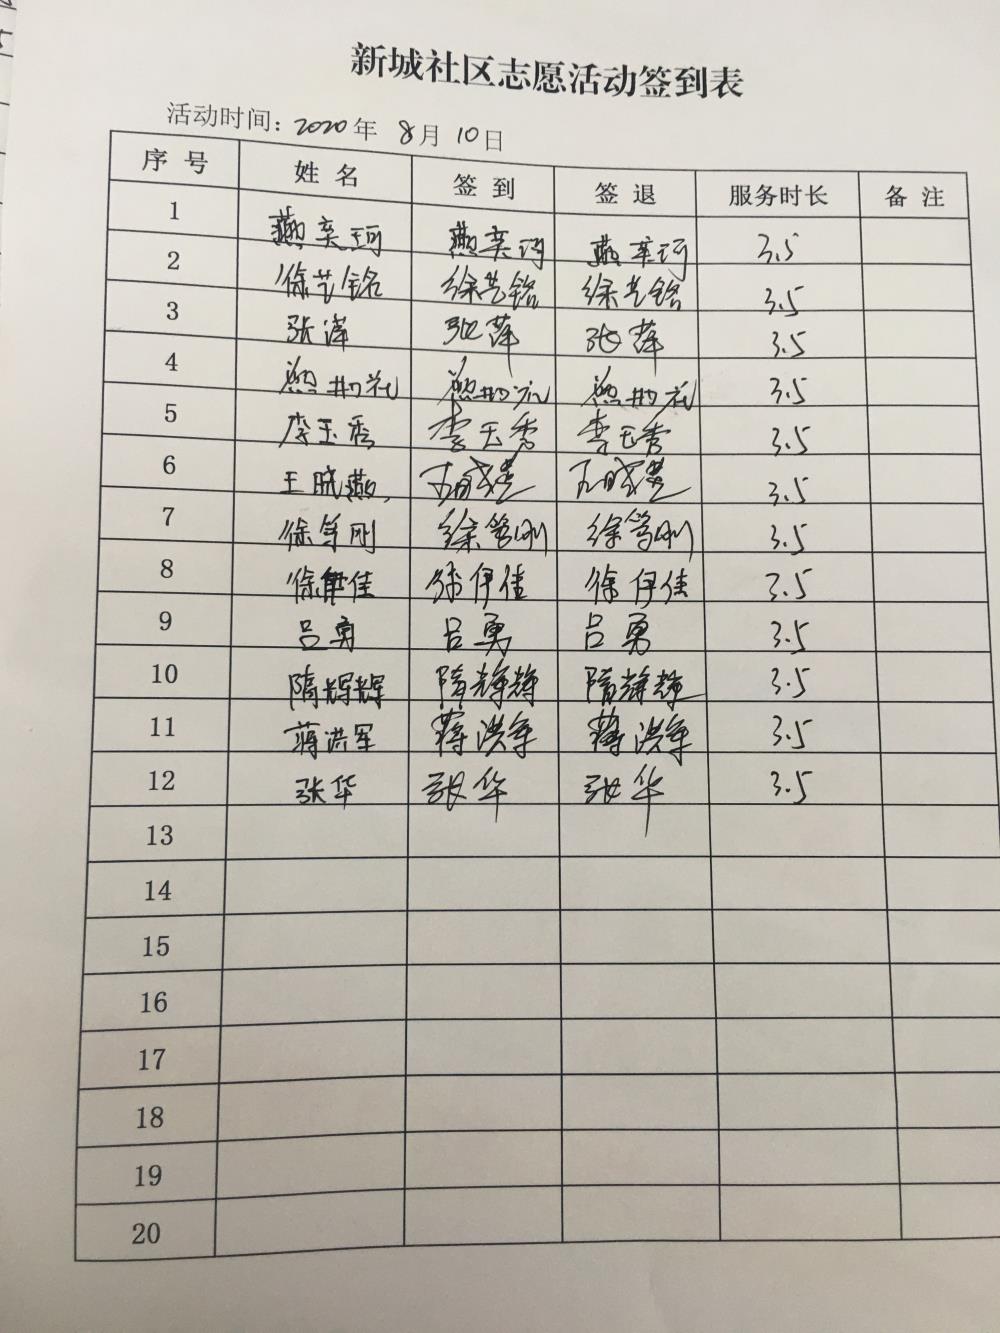 新城社区志愿活动签到表
活动时间：2020年 8月 10日
序号 姓名 签到 签退 服务时长 备注
1 燕奕珂 燕奕珂 燕奕珂 3.5
2 徐艺铭 徐艺铭 徐艺铭 3.5
3 张萍 张萍 张萍 3.5
4 3.5
5 李玉秀 李玉秀 李玉秀 3.5
6 王晓燕 3.5
7 徐笃刚 徐笃刚 徐笃刚 3.5
8 徐伊佳 徐伊佳 徐伊佳 3.5
9 吕勇 吕勇 吕勇 3.5
10 隋辉辉 隋辉辉 隋辉辉 3.5
11 蒋洪军 蒋洪军 蒋洪军 3.5
12 张华 张华 张华 3.5
13
14
15
16
17
18
19
20